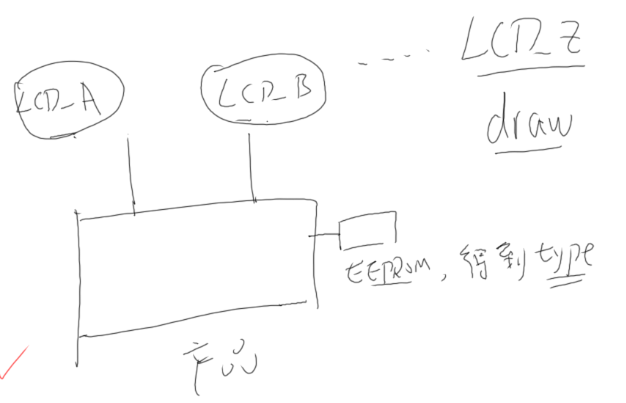 LCD_A LCD_B ..... LCD_Z
draw
EEPROM, 得到type
产品